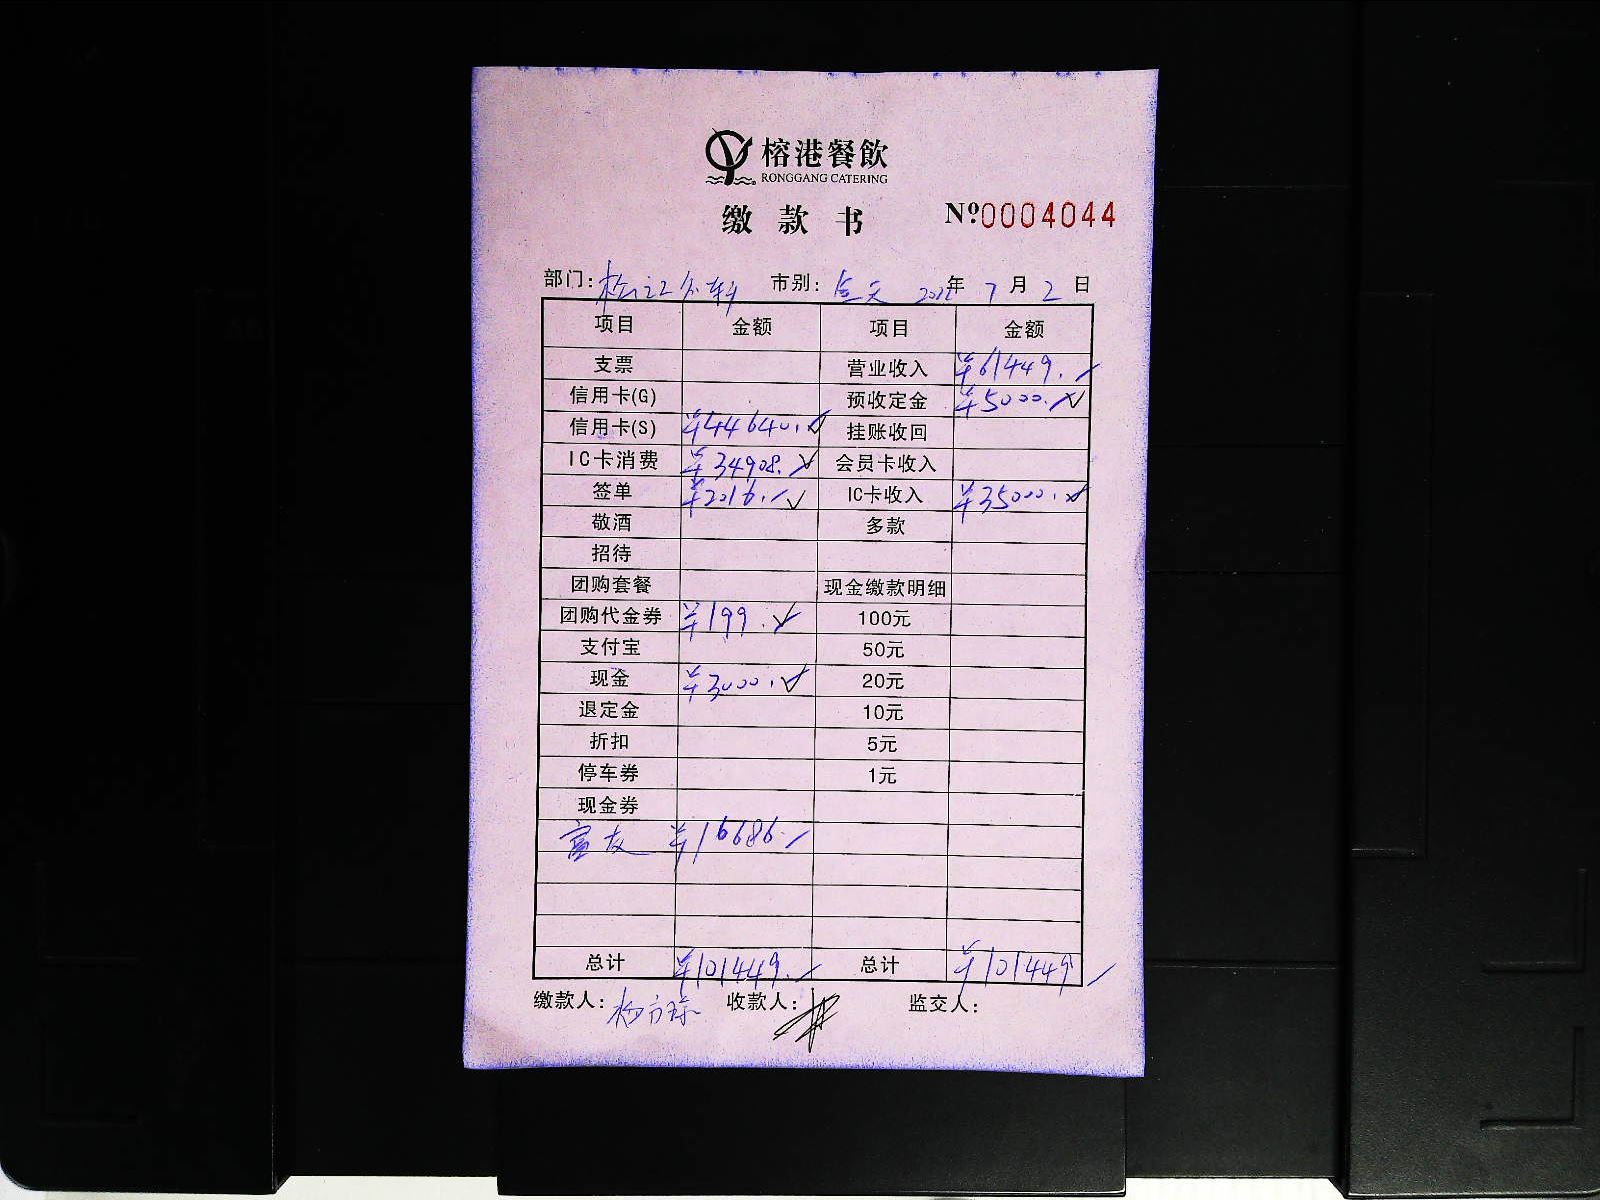 榕港餐飲
RONGGANG CATERING
缴款书 №0004044
部门: 市别: 全天 2022年 7月 2日
项目 金额 项目 金额
支票 营业收入 ¥61449.
信用卡(G) 预收定金 ¥5000.
信用卡(S) ¥44640. 挂账收回
IC卡消费 ¥34908. 会员卡收入
签单 ¥2016. IC卡收入 ¥35000.
敬酒 多款
招待
团购套餐 现金缴款明细
团购代金券 ¥199. 100元
支付宝 50元
现金 ¥3000. 20元
退定金 10元
折扣 5元
停车券 1元
现金券
富友 ¥16686
总计 ¥101449. 总计 ¥101449
缴款人: 收款人: 监交人: